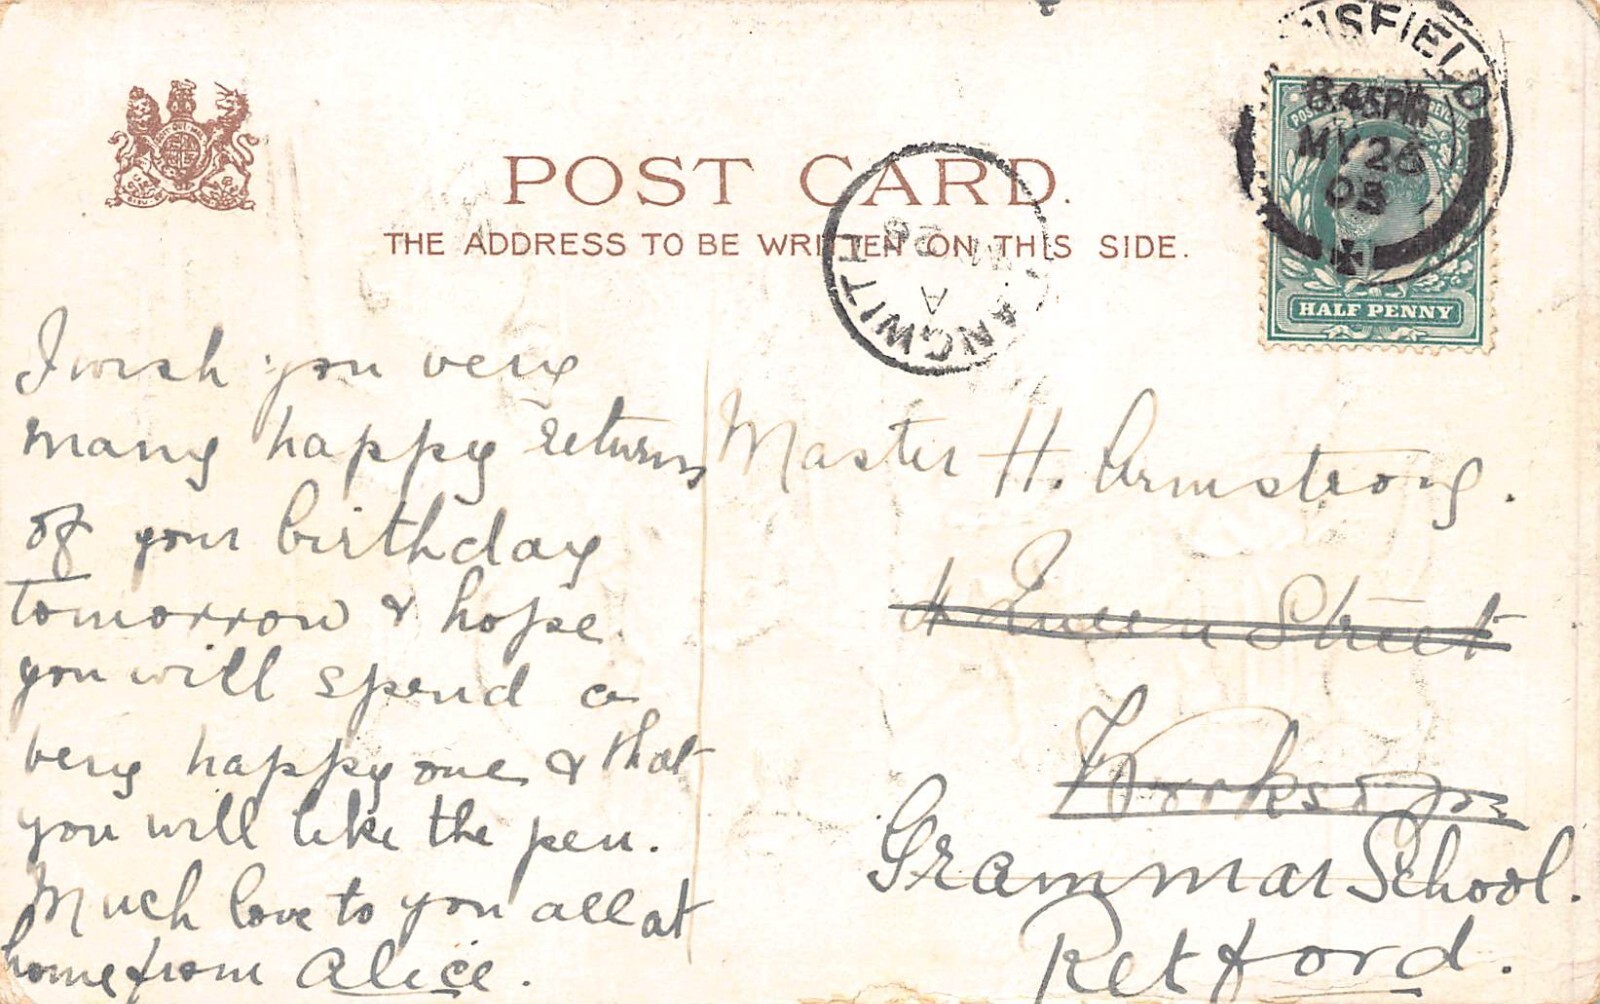 POST CARD.
THE ADDRESS TO BE WRITTEN ON THIS SIDE.
NSFIELD
8.45PM
MY 26
LANGWITH
A
26
HALF PENNY
I wish you very
many happy returns
of your birthday
tomorrow & hope
you will spend a
very happy one & that
you will like the pen.
Much love to you all at
home from Alice.
Master H. Armstrong.
4 Queen Street
Worksop
Grammar School.
Retford.